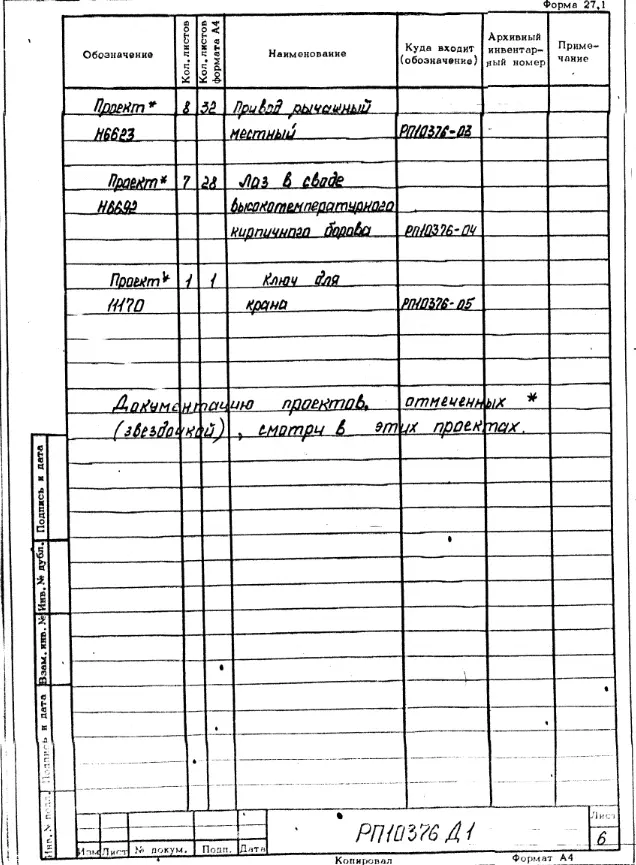 Форма 27,1
Обозначение Кол. листов Кол. листов формата А4 Наименование Куда входит (обозначение) Архивный инвентарный номер Примечание
Проект* 8 32 Привод рычажный
Н6623 местный РП10376-03
Проект* 7 28 Лаз в своде
Н6692 высокотемпературного
кирпичного борова РП10376-04
Проект* 1 1 Ключ для
11170 крана РП10376-05
Документацию проектов, отмеченных *
(звездочкой), смотри в этих проектах.
Подпись и дата
Инв. № дубл.
Взам. инв. №
Подпись и дата
Инв. № подл.
РП10376 Д1
Лист
6
Изм Лист № докум. Подп. Дата
Копировал Формат А4